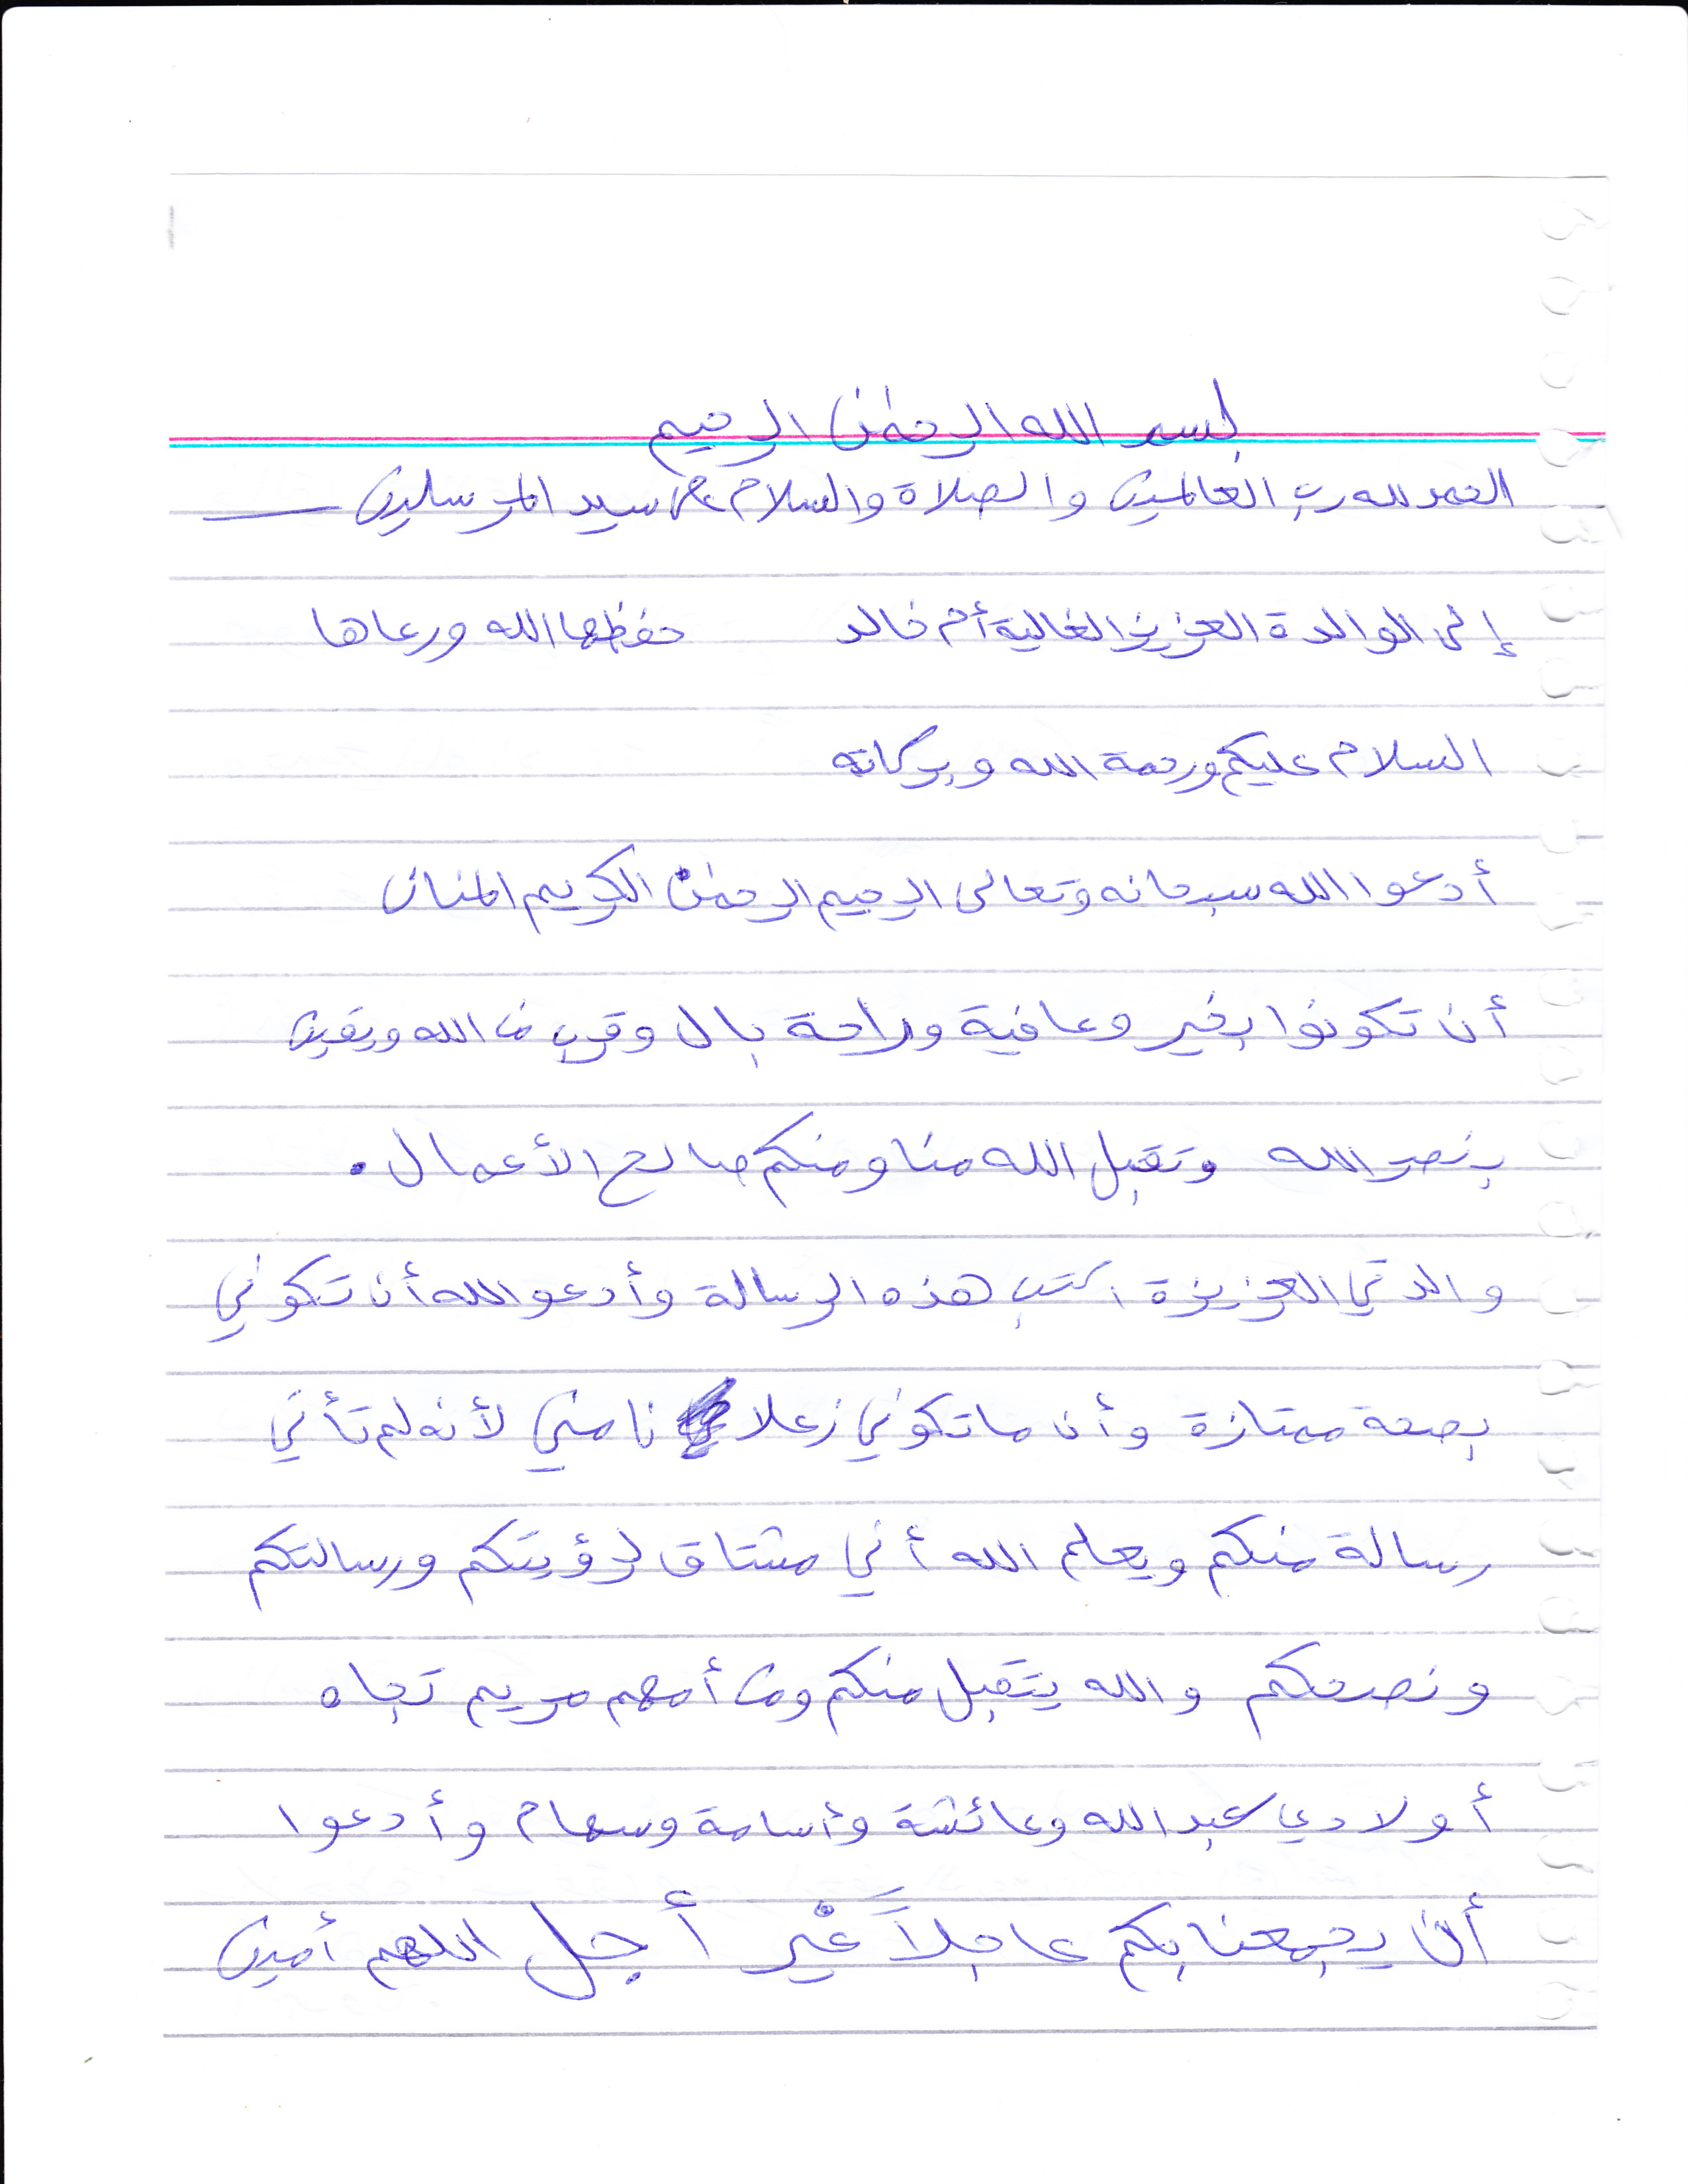 بسم الله الرحمن الرحيم
الحمد لله رب العالمين والصلاة والسلام على سيد المرسلين
إلى الوالدة العزيز الغالية أم خالد حفظها الله ورعاها
السلام عليكم ورحمة الله وبركاته
أدعوا الله سبحانه وتعالى الرحيم الرحمن الكريم المنان
أن تكونوا بخير وعافية وراحة بال وقرب من الله ويقين
بنصر الله وتقبل الله منا ومنكم صالح الأعمال.
والدتي العزيزة اكتب هذه الرسالة وأدعو الله أن تكوني
بصحة ممتازة وأن ما تكوني زعلانا مني لأنه لم تأتي
رسالة منكم ويعلم الله أني مشتاق لرؤيتكم ورسالتكم
ونصحكم والله يتقبل منكم ومن أمهم مريم تجاه
أولادي عبد الله وعائشة وأسامة وسهام وأدعوا
أن يجمعنا بكم عاجلاً غيْر أجل اللهم أمين